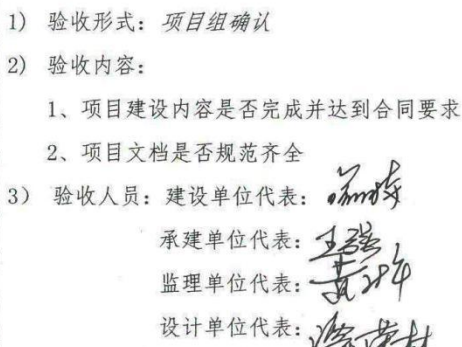 1) 验收形式：项目组确认
2) 验收内容：
1、项目建设内容是否完成并达到合同要求
2、项目文档是否规范齐全
3) 验收人员：建设单位代表：
承建单位代表：王强
监理单位代表：
设计单位代表：